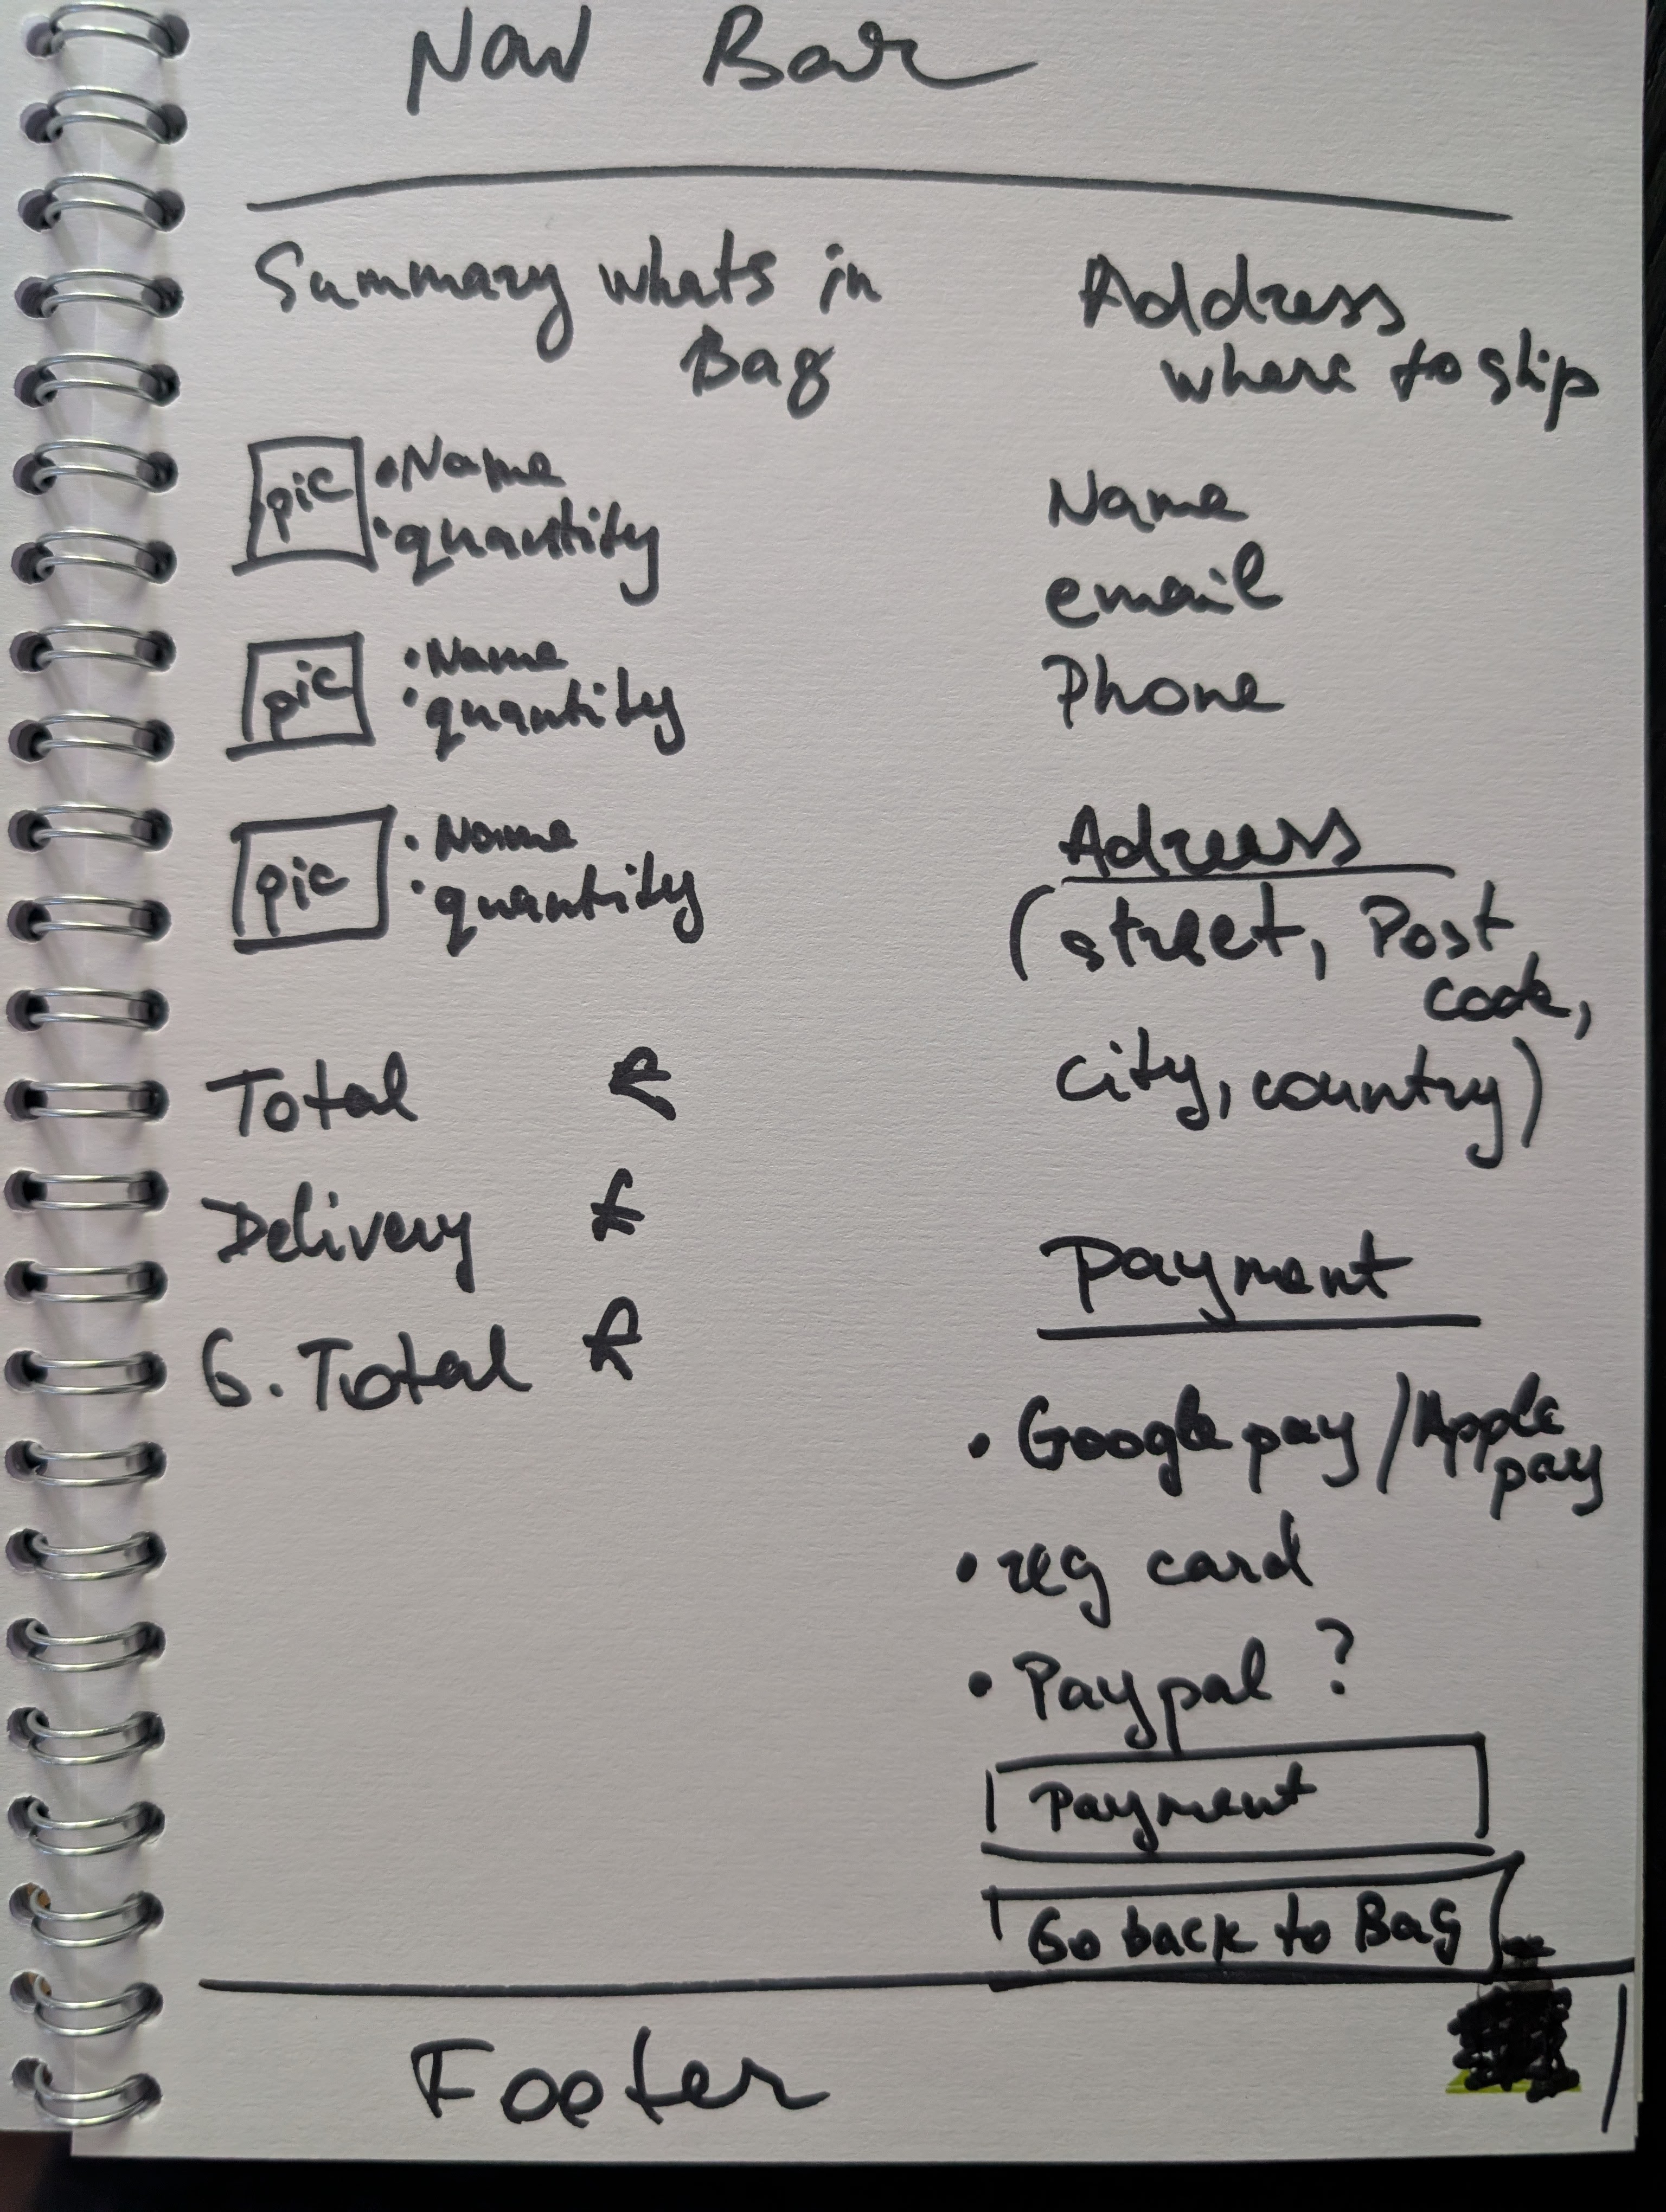 Nav Bar
Summary whats in
Bag
pic
• Name
• quantity
pic
• Name
• quantity
pic
• Name
• quantity
Total £
Delivery £
G. Total £
Address
where to ship
Name
email
Phone
Adress
(street, Post
code,
city, country)
Payment
• Google pay / Apple
pay
• reg card
• Paypal ?
Payment
Go back to Bag
Footer